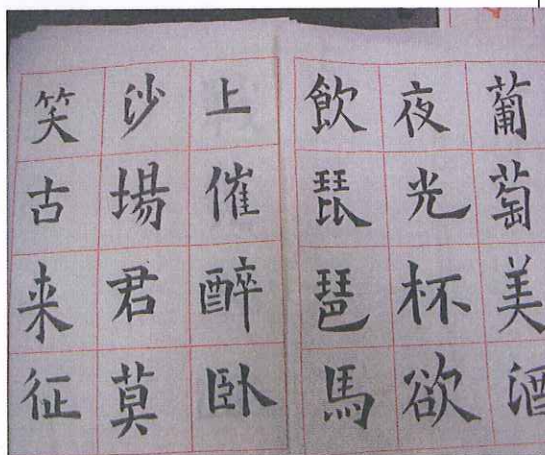 葡萄美酒
夜光杯欲
飲琵琶馬
上催醉卧
沙場君莫
笑古来征